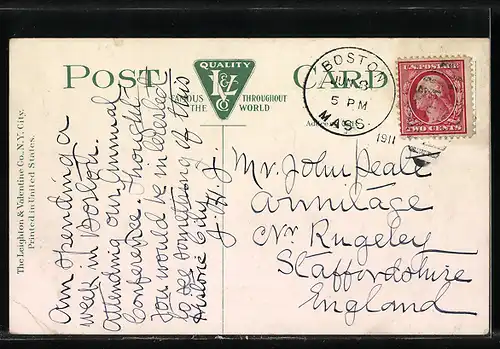 POST CARD
QUALITY
L&V
Co
FAMOUS THROUGHOUT
THE WORLD
The Leighton & Valentine Co., N.Y. City.
Printed in United States.
BOSTON
JUN
5 PM
MASS.
1911
U.S. POSTAGE
TWO CENTS
Am spending a
week in Boston.
Attending our Annual
Conference. Thought
You would be interested
to see something of this
Historic City.
Mr. John Peale
Armitage
Nr. Rugeley
Staffordshire
England